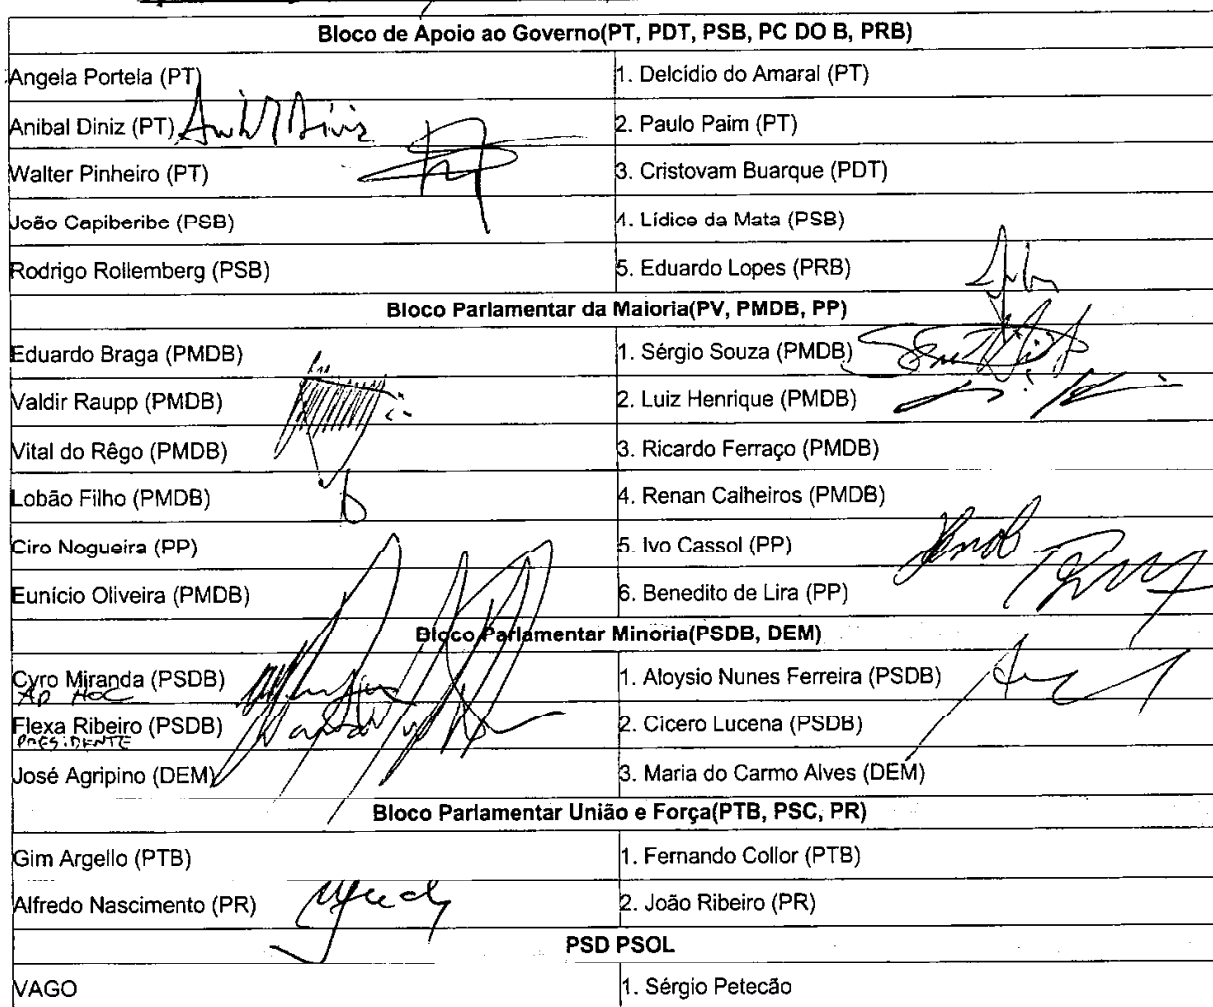 Bloco de Apoio ao Governo(PT, PDT, PSB, PC DO B, PRB)
Angela Portela (PT) 1. Delcídio do Amaral (PT)
Anibal Diniz (PT) Anibal Diniz 2. Paulo Paim (PT)
Walter Pinheiro (PT) 3. Cristovam Buarque (PDT)
João Capiberibe (PSB) 4. Lídice da Mata (PSB)
Rodrigo Rollemberg (PSB) 5. Eduardo Lopes (PRB)
Bloco Parlamentar da Maioria(PV, PMDB, PP)
Eduardo Braga (PMDB) 1. Sérgio Souza (PMDB)
Valdir Raupp (PMDB) 2. Luiz Henrique (PMDB)
Vital do Rêgo (PMDB) 3. Ricardo Ferraço (PMDB)
Lobão Filho (PMDB) 4. Renan Calheiros (PMDB)
Ciro Nogueira (PP) 5. Ivo Cassol (PP)
Eunício Oliveira (PMDB) 6. Benedito de Lira (PP)
Bloco Parlamentar Minoria(PSDB, DEM)
Cyro Miranda (PSDB) 1. Aloysio Nunes Ferreira (PSDB)
AD HOC
Flexa Ribeiro (PSDB) 2. Cícero Lucena (PSDB)
PRESIDENTE
José Agripino (DEM) 3. Maria do Carmo Alves (DEM)
Bloco Parlamentar União e Força(PTB, PSC, PR)
Gim Argello (PTB) 1. Fernando Collor (PTB)
Alfredo Nascimento (PR) 2. João Ribeiro (PR)
PSD PSOL
VAGO 1. Sérgio Petecão